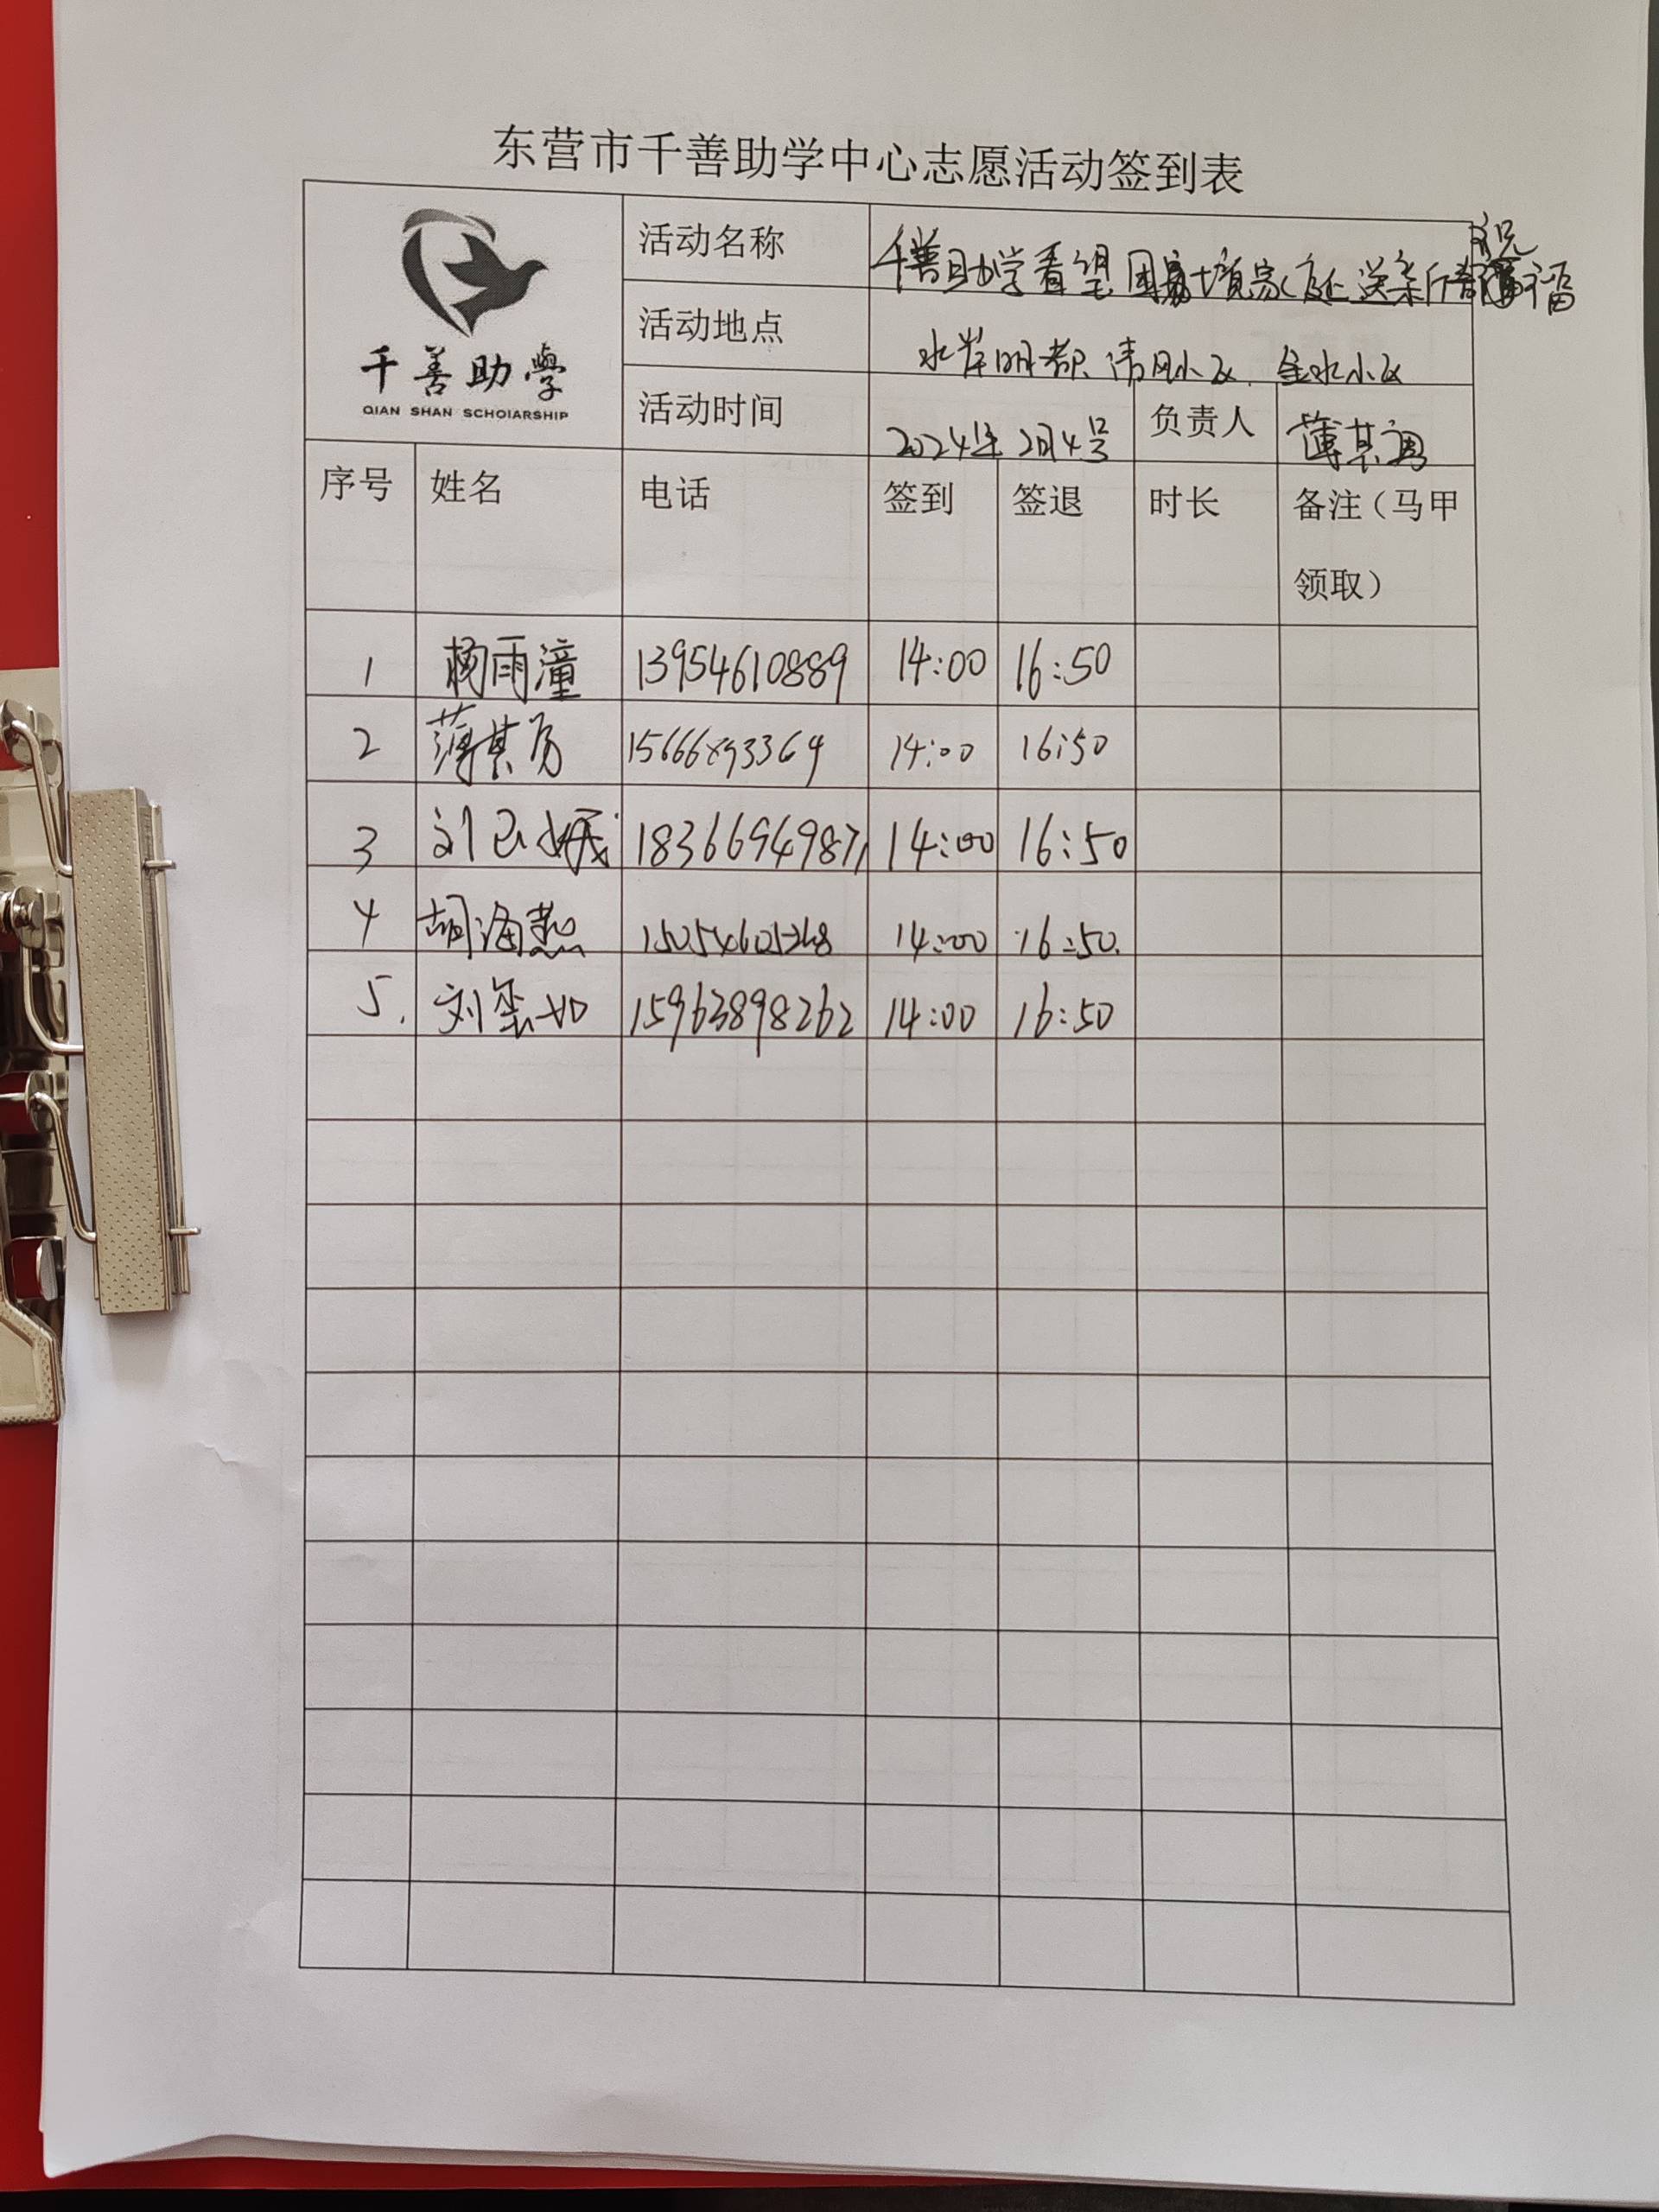 东营市千善助学中心志愿活动签到表
千善助学
QIAN SHAN SCHOIARSHIP
活动名称 千善助学看望困难家庭送亲祝福
活动地点 水岸明都 清风小区 金水小区
活动时间 2024年2月4号 负责人 薄其
序号 姓名 电话 签到 签退 时长 备注（马甲
领取）
1 杨雨潼 13954610889 14:00 16:50
2 薄其 14:00 16:50
3 刘 1836694987 14:00 16:50
4 胡海燕 14:00 16:50
5. 刘 15963898262 14:00 16:50